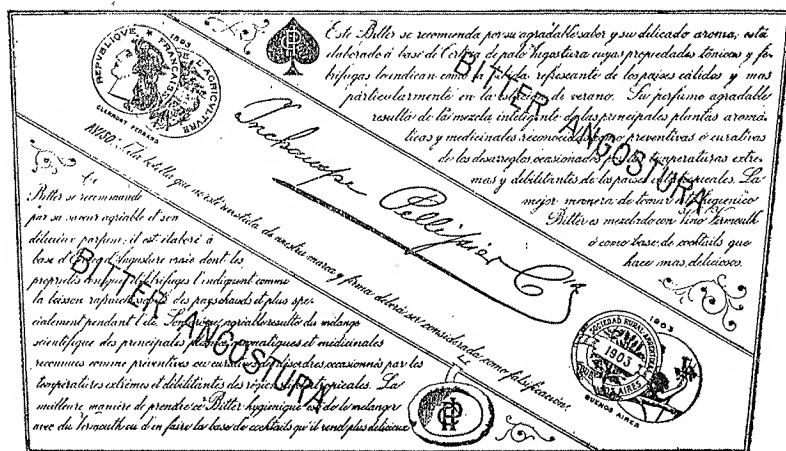 1903
REPUBLIQUE FRANÇAISE
L'AGRICULTURE
CLERMONT FERRAND
Este Bitter se recomienda por su agradable sabor y su delicado aroma; está
elaborado á base de Corteza de palo Angostura cuyas propiedades tónicas y fe-
brifugas lo indican como la bebida refrescante de los paises cálidos y mas
particularmente en la estación de verano. Su perfume agradable
resulta de la mezcla inteligente de las principales plantas aromá-
ticas y medicinales reconocidas como preventivas ó curativas
de los desarreglos ocasionados por las temperaturas extre-
mas y debilitantes de los paises tropicales. La
mejor manera de tomar este higienico
Bitter es mezclado con Vino Vermouth
ó como base de cocktails que
hace mas deliciosos.
BITTER ANGOSTURA
Inchauspe Pellissier Cia
AVISO: Toda botella que no esté revestida de nuestra marca y firma deberá ser considerada como falsificación.
Ce
Bitter se recommande
par sa saveur agréable et son
délicieux parfum; il est élaboré à
base d'Ecorce d'Angusture vraie dont les
propriétés toniques et fébrifuges l'indiquent comme
la boisson rafraichissante des pays chauds et plus spé-
cialement pendant l'été. Son arôme agréable resulte du mélange
scientifique des principales plantes aromatiques et médicinales
reconnues comme préventives ou curatives des désordres occasionnés par les
températures extrêmes et débilitantes des régions tropicales. La
meilleure manière de prendre ce Bitter hygiénique est de le mélanger
avec du Vermouth ou d'en faire la base de cocktails qu'il rend plus délicieux
BITTER ANGOSTURA
1903
SOCIEDAD RURAL ARGENTINA
1903
BUENOS AIRES
BUENOS AIRES